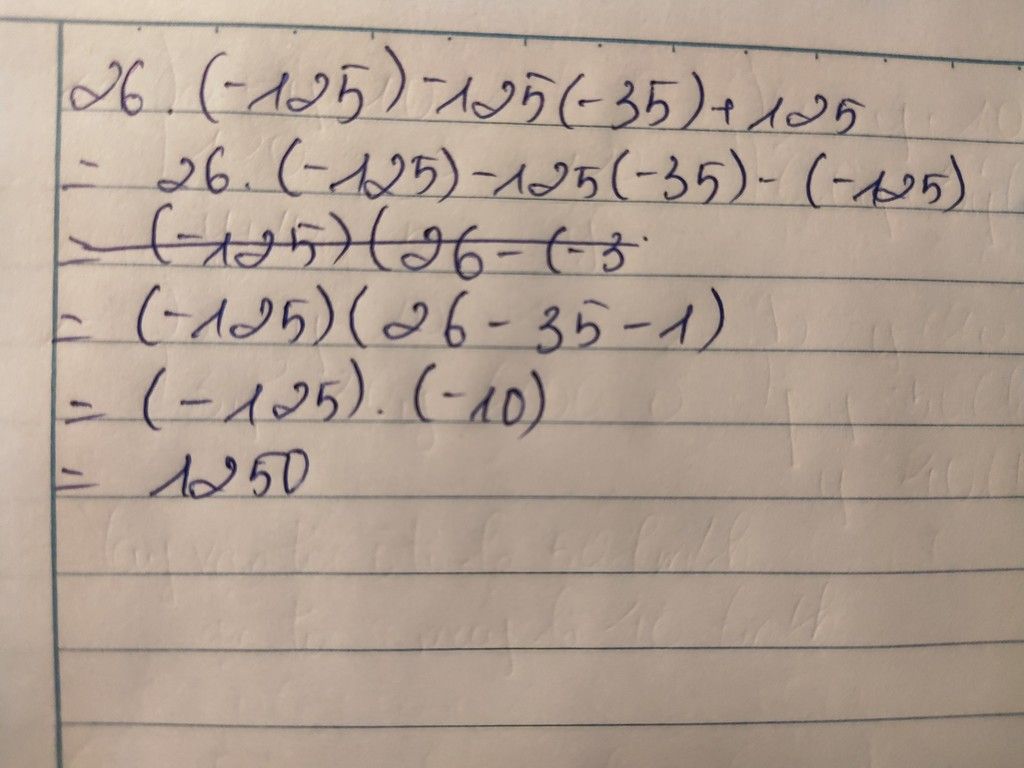 26.(-125)-125(-35)+125
= 26.(-125)-125(-35)-(-125)
= (-125)(26-(-3
= (-125)(26-35-1)
= (-125).(-10)
= 1250